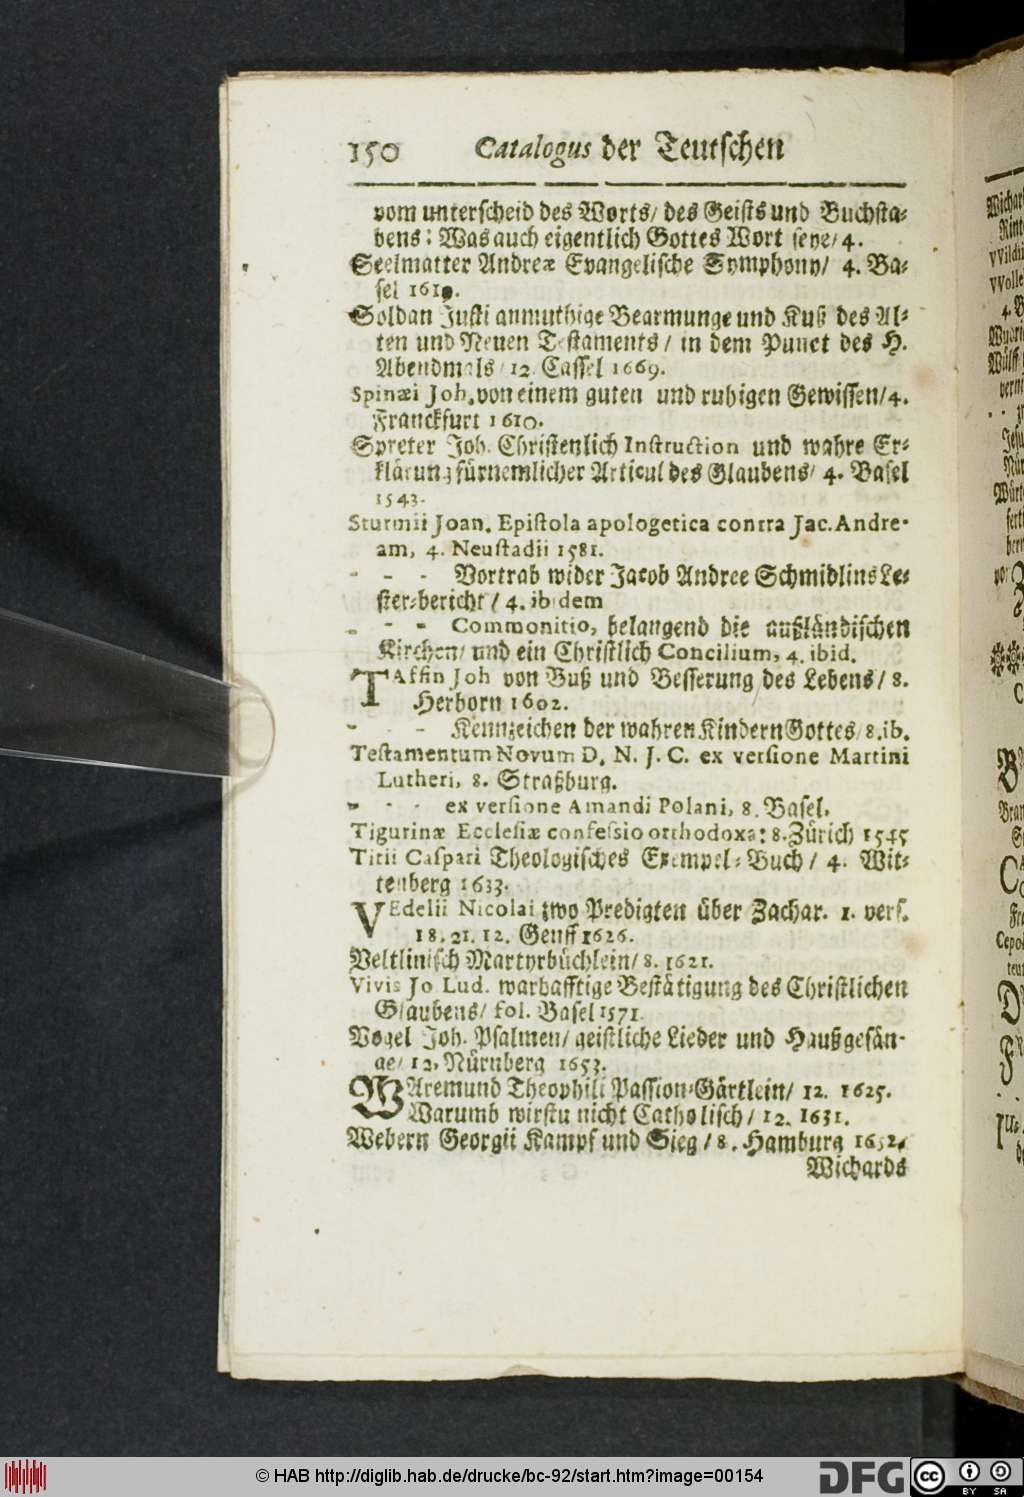 150 Catalogus der Teutschen
vom unterscheid des Worts/ des Geists und Buchsta-
bens: Was auch eigentlich Gottes Wort seye/ 4.
Seelmatter Andreæ Evangelische Symphony/ 4. Ba-
sel 1619.
Soldan Justi anmuthige Bearmunge und Kuß des Al-
ten und Neuen Testaments / in dem Punct des H.
Abendmals/ 12. Cassel 1669.
Spinæi Joh. von einem guten und ruhigen Gewissen/ 4.
Franckfurt 1610.
Spreter Joh. Christenlich Instruction und wahre Er-
klärung fürnemlicher Articul des Glaubens/ 4. Basel
1543.
Sturmii Joan. Epistola apologetica contra Jac. Andre-
am, 4. Neustadii 1581.
- - - Vortrab wider Jacob Andree Schmidlins Le-
ster-bericht / 4. ibidem
- - - Commonitio, belangend die außländischen
Kirchen/ und ein Christlich Concilium, 4. ibid.
TAffin Joh von Buß und Besserung des Lebens/ 8.
Herborn 1602.
- - - Kennzeichen der wahren Kindern Gottes/ 8. ib.
Testamentum Novum D. N. J. C. ex versione Martini
Lutheri, 8. Straßburg.
- - - ex versione Amandi Polani, 8. Basel.
Tigurinæ Ecclesiæ confessio orthodoxa: 8. Zürich 1545
Titii Caspari Theologisches Exempel-Buch / 4. Wit-
tenberg 1633.
VEdelii Nicolai zwo Predigten über Zachar. 1. vers.
18. 21. 12. Genff 1626.
Veltlinisch Martyrbüchlein/ 8. 1621.
Vivis Jo Lud. warhafftige Bestätigung des Christlichen
Glaubens/ fol. Basel 1571.
Vogel Joh. Psalmen/ geistliche Lieder und Haußgesän-
ge/ 12. Nürnberg 1653.
WAremund Theophili Passion-Gärtlein/ 12. 1625.
Warumb wirstu nicht Catholisch/ 12. 1631.
Webern Georgii Kampf und Sieg / 8. Hamburg 1652.
Wichards
© HAB http://diglib.hab.de/drucke/bc-92/start.htm?image=00154
DFG
cc BY SA